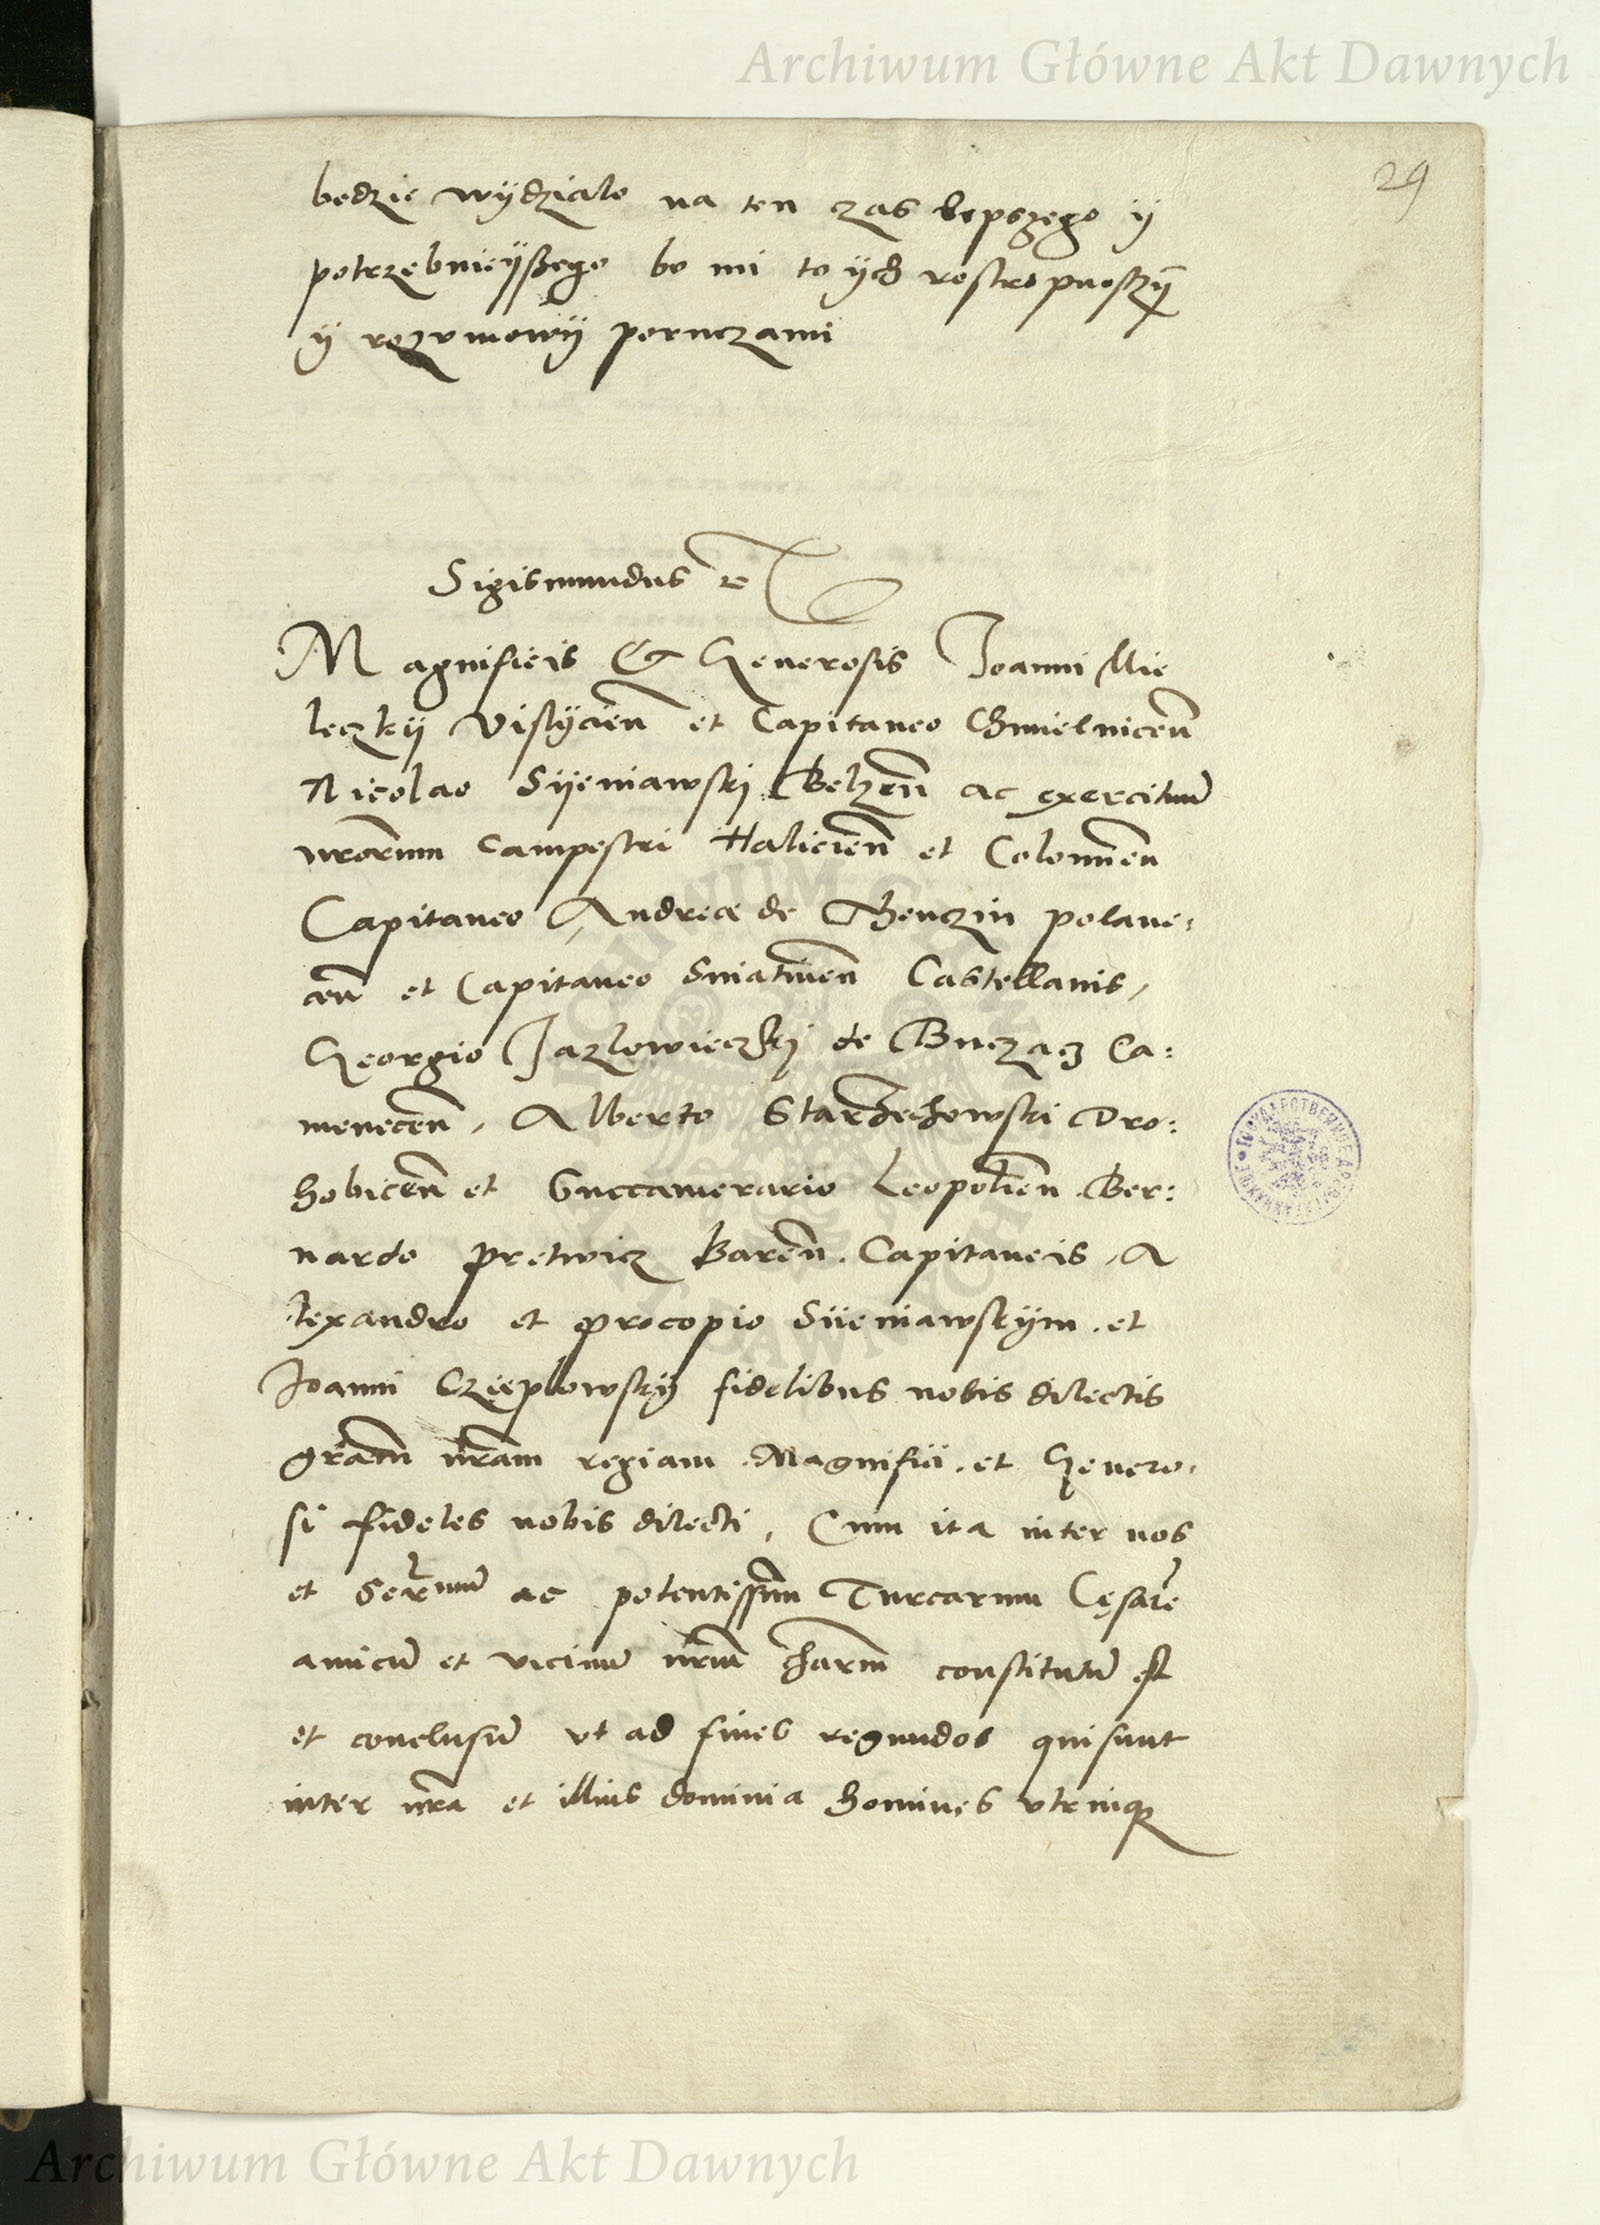 Archiwum Główne Akt Dawnych
29
bedzie wydzialo na ten czas lepszego y
potrzebnieyszego bo mi to ych rostropnosczy
y rozumowy poruczami
Sigismundus rc
Magnificis & Generosis Joanni Mie
leczky Vislicien et Capitaneo Chmielnicen
Nicolao Syeniawski Belzen ac exercituu
nrorum Campestri Halicien et Colomien
Capitaneo, Andreæ de Thenczin polane,
cen et Capitaneo Sniatinen Castellanis,
Georgio Jazlowieczkj de Buczacz Ca:
menecen, Alberto Starzechowski Dro:
hobicen et Succamerario Leopolien. Ber:
nardo pretwicz Baren. Capitaneis, A
lexandro et procopio Syeniawskym. et
Joanni Czieplowsky fidelibus nobis dilectis
gram nram regiam. Magnifici. et Genero,
si fideles nobis dilecti, Cum ita inter nos
et Serrmu ac potentissm Turcarum Cęsare
amicu et vicinu nrum charm constitutu est
et conclusu ut ad fines regundos qui sunt
inter nra et illius dominia homines utrinque
ГОСУДАРСТВЕННОЕ
Archiwum Główne Akt Dawnych